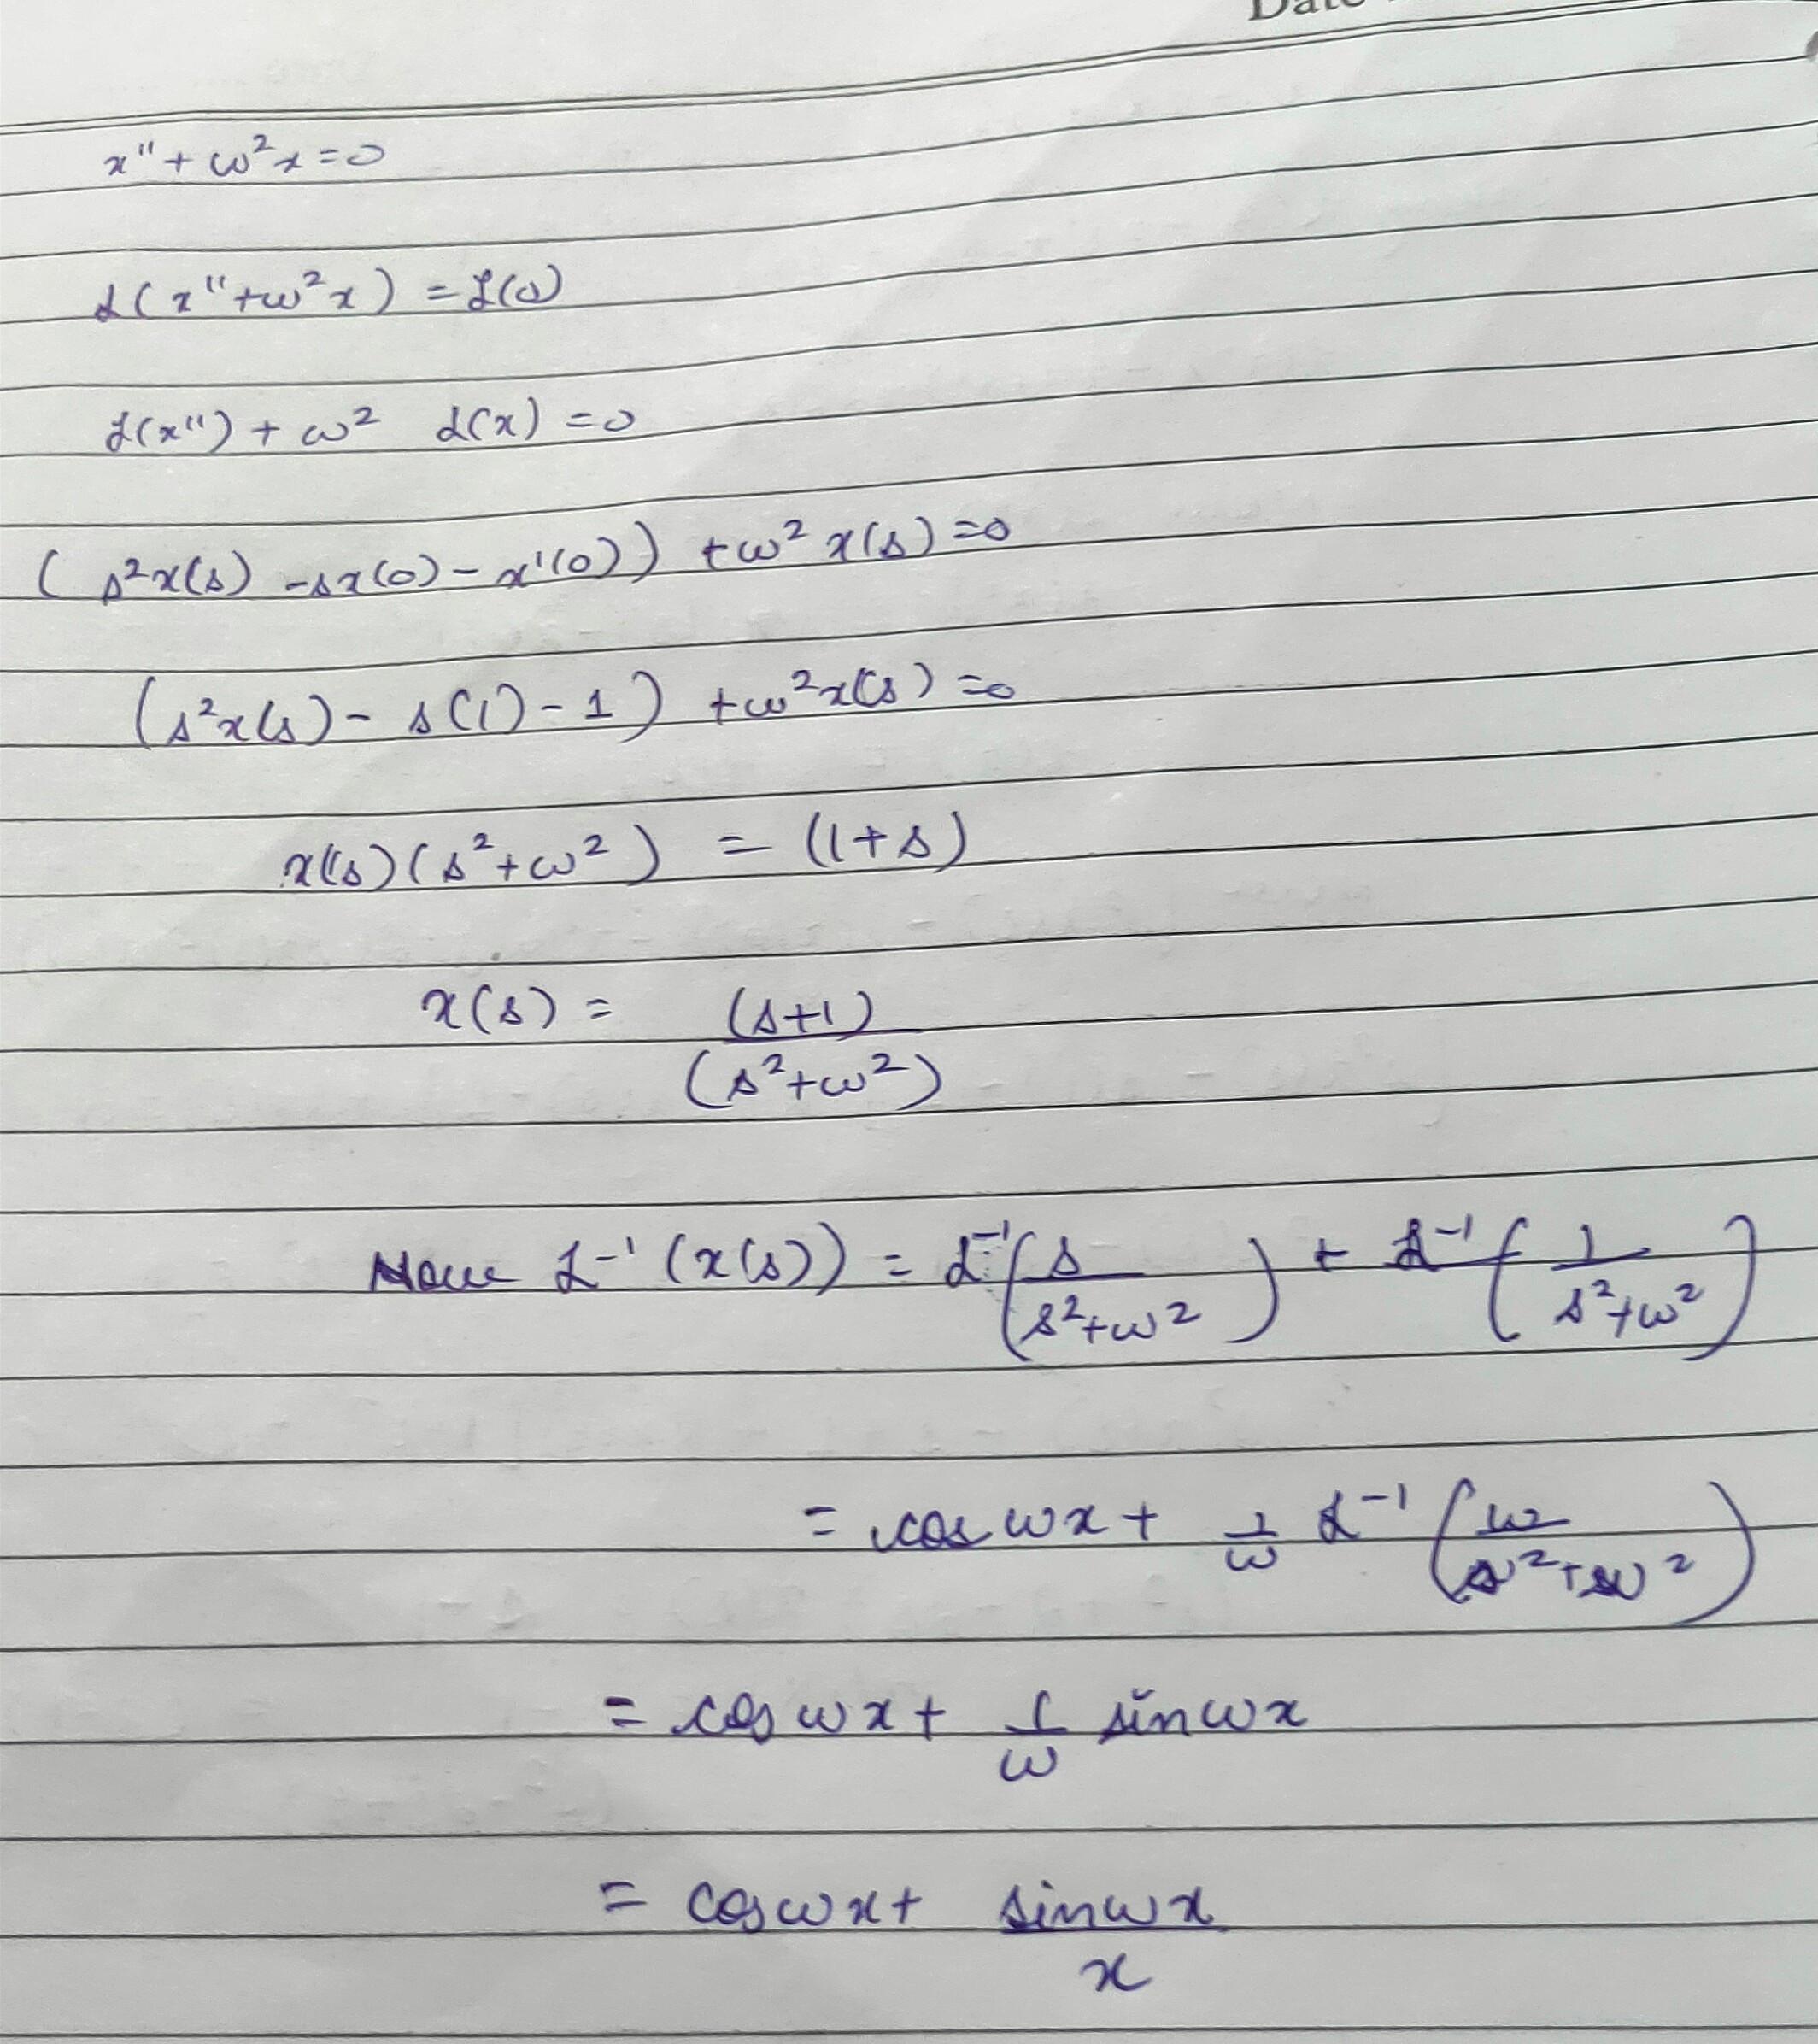 Date
x'' + ω²x = 0
ℒ(x'' + ω²x) = ℒ(0)
ℒ(x'') + ω² ℒ(x) = 0
(s²x(s) - sx(0) - x'(0)) + ω²x(s) = 0
(s²x(s) - s(1) - 1) + ω²x(s) = 0
x(s)(s² + ω²) = (1 + s)
x(s) = (s+1) / (s² + ω²)
Now ℒ⁻¹(x(s)) = ℒ⁻¹(s / (s² + ω²)) + ℒ⁻¹(1 / (s² + ω²))
= cos ωx + 1/ω ℒ⁻¹(ω / (s² + ω²))
= cos ωx + 1/ω sin ωx
= cos ωx + sin ωx / x